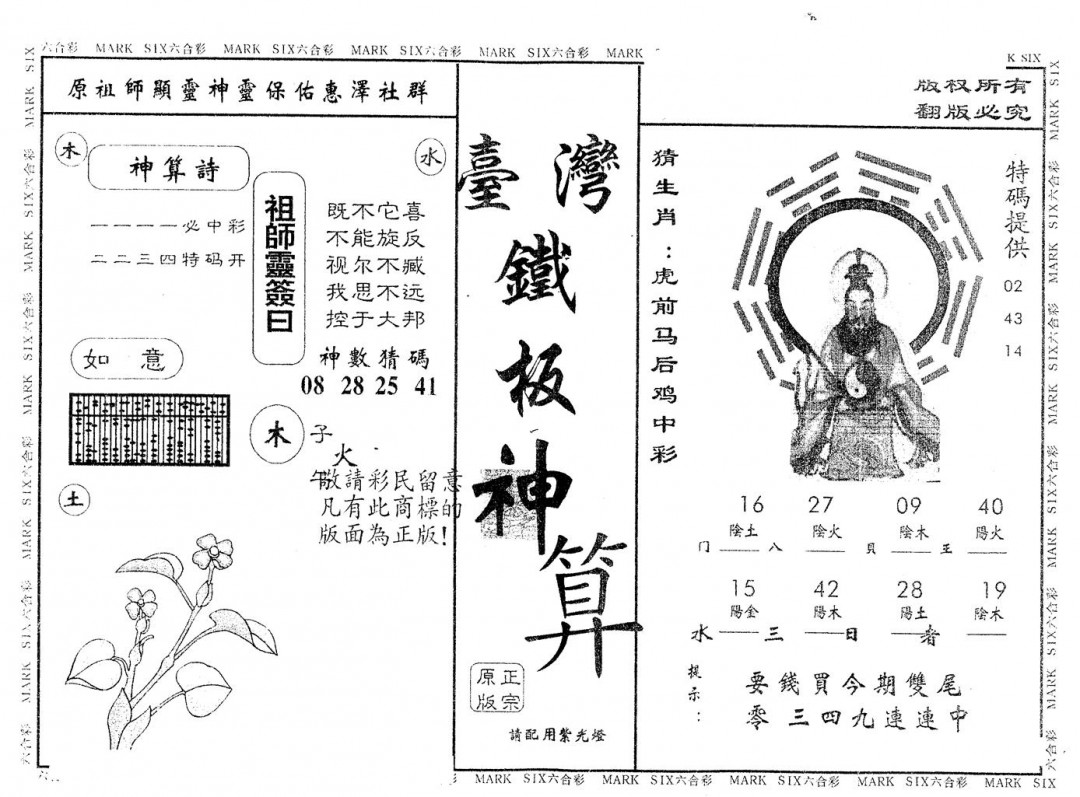 六合彩 MARK SIX六合彩 MARK SIX六合彩 MARK SIX六合彩 MARK SIX六合彩 MARK
K SIX
原祖師顯靈神靈保佑惠澤社群
木
神算詩
水
一一一一必中彩
二二三四特码开
祖師靈簽曰
既不它喜
不能旋反
视尔不臧
我思不远
控于大邦
神數猜碼
08 28 25 41
如意
木
子
火
午
敬請彩民留意
凡有此商標的
版面為正版!
土
臺灣
鐵
板
神
算
正宗
原版
請配用紫光燈
版权所有
翻版必究
猜生肖：虎前马后鸡中彩
特碼提供
02
43
14
16 27 09 40
陰土 陰火 陰木 陽火
门 八 貝 王
15 42 28 19
陽金 陽木 陽土 陰木
水 三 日 者
提示：
要錢買今期雙尾
零三四九連連中
MARK SIX六合彩 MARK SIX六合彩 MARK SIX六合彩 MARK SIX六合彩 MARK SIX
MARK SIX六合彩 MARK SIX六合彩 MARK SIX六合彩 MARK SIX六合彩 MARK SIX六合彩
MARK SIX六合彩 MARK SIX六合彩 MARK SIX六合彩 MARK SIX六合彩 MARK SIX六合彩